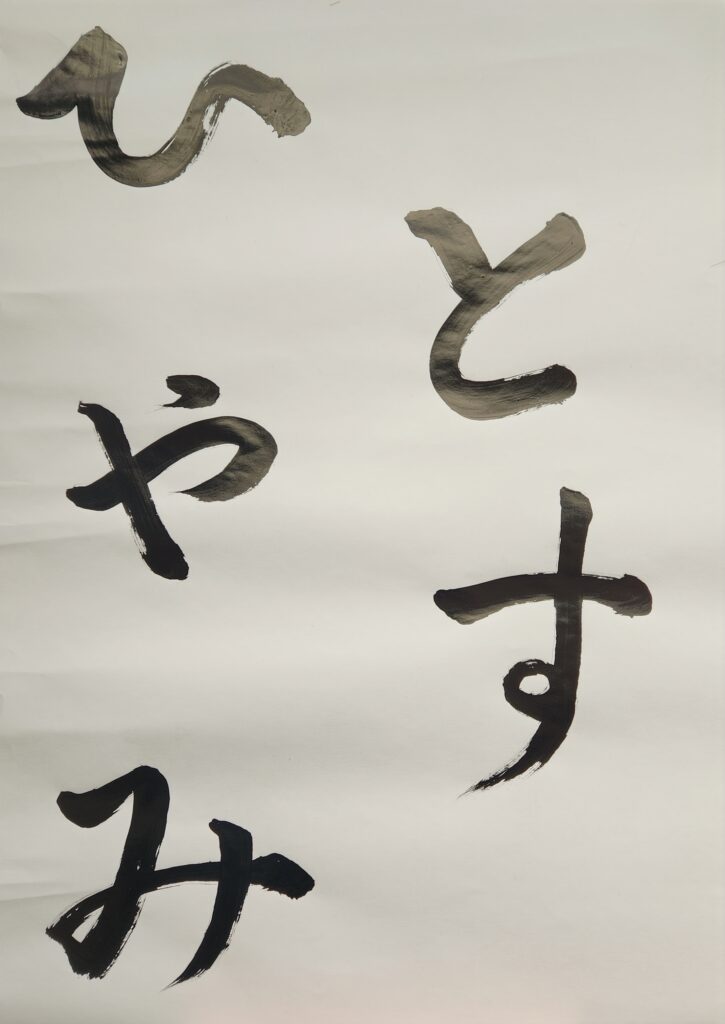 とす
ひやみ